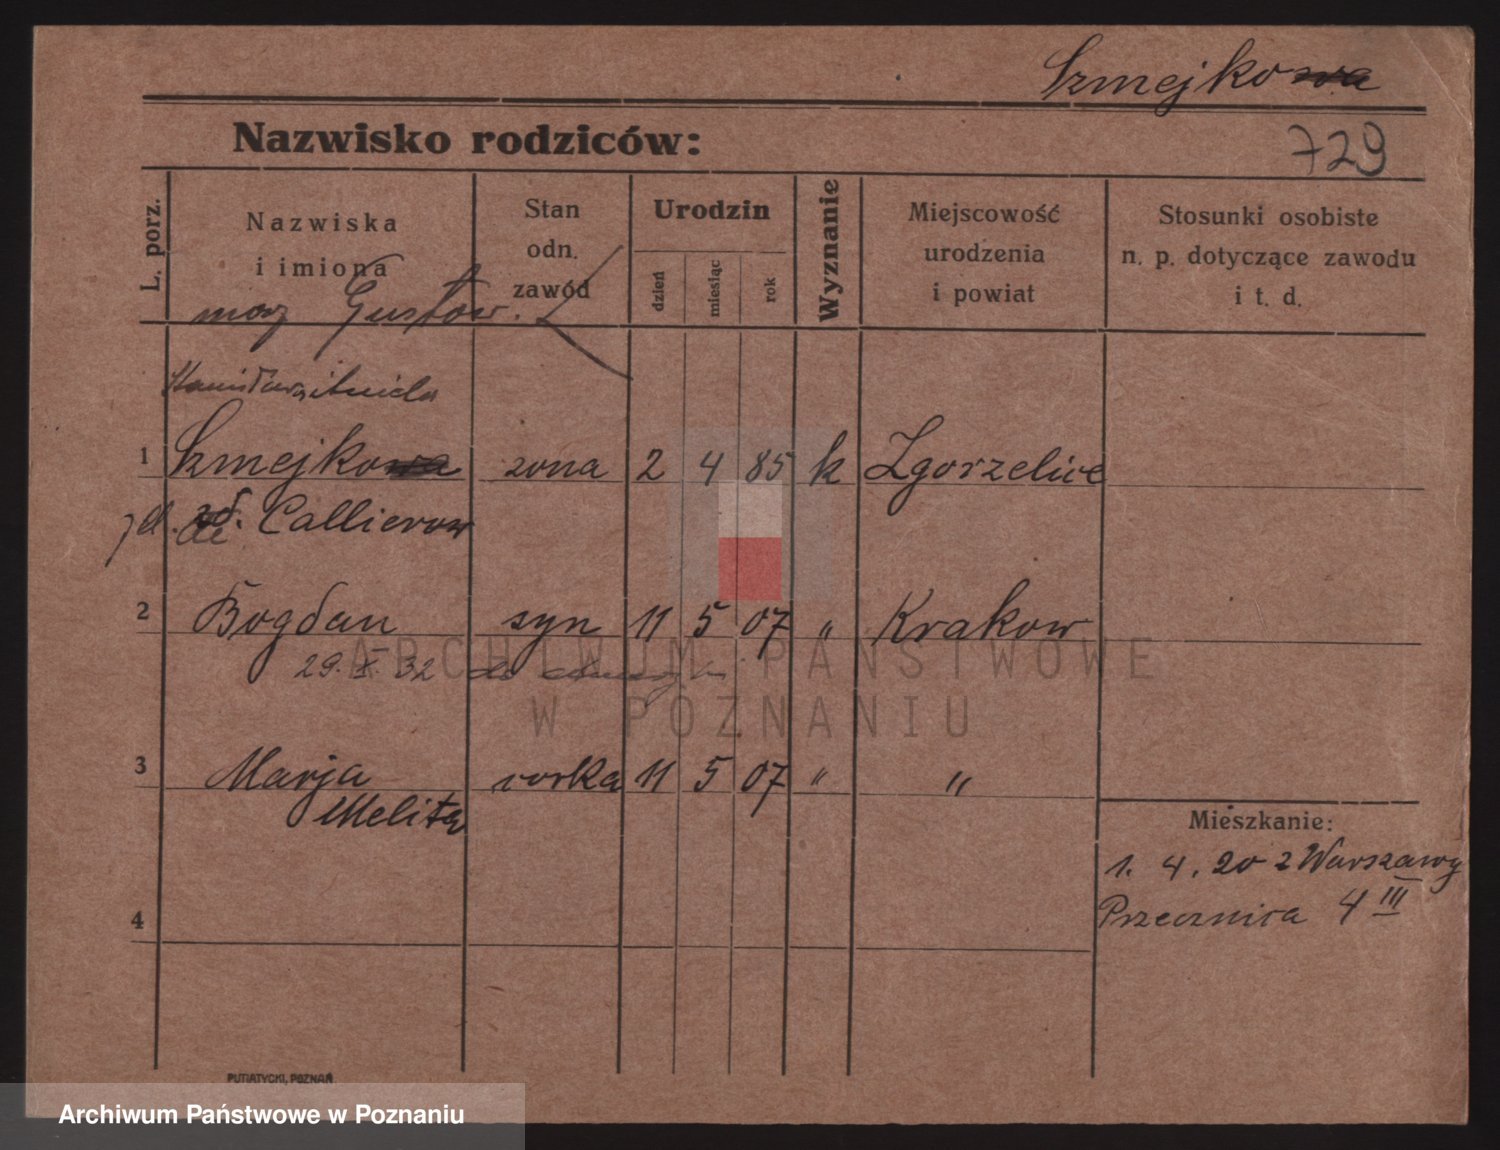 Szmejkowa
Nazwisko rodziców:
729
L. porz.
Nazwiska
i imiona
Stan
odn.
zawód
Urodzin
dzień
miesiąc
rok
Wyznanie
Miejscowość
urodzenia
i powiat
Stosunki osobiste
n. p. dotyczące zawodu
i t. d.
mąż Gustaw.
1 Szmejkowa żona 2 4 85 k Zgorzelice
Callierow
2 Bogdan syn 11 5 07 " Krakow
29. X. 32 do
3 Marja corka 11 5 07 " "
Melita
Mieszkanie:
1. 4. 20 z Warszawy
Przecznica 4 III
4
ARCHIWUM PAŃSTWOWE
W POZNANIU
PUTIATYCKI, POZNAŃ.
Archiwum Państwowe w Poznaniu